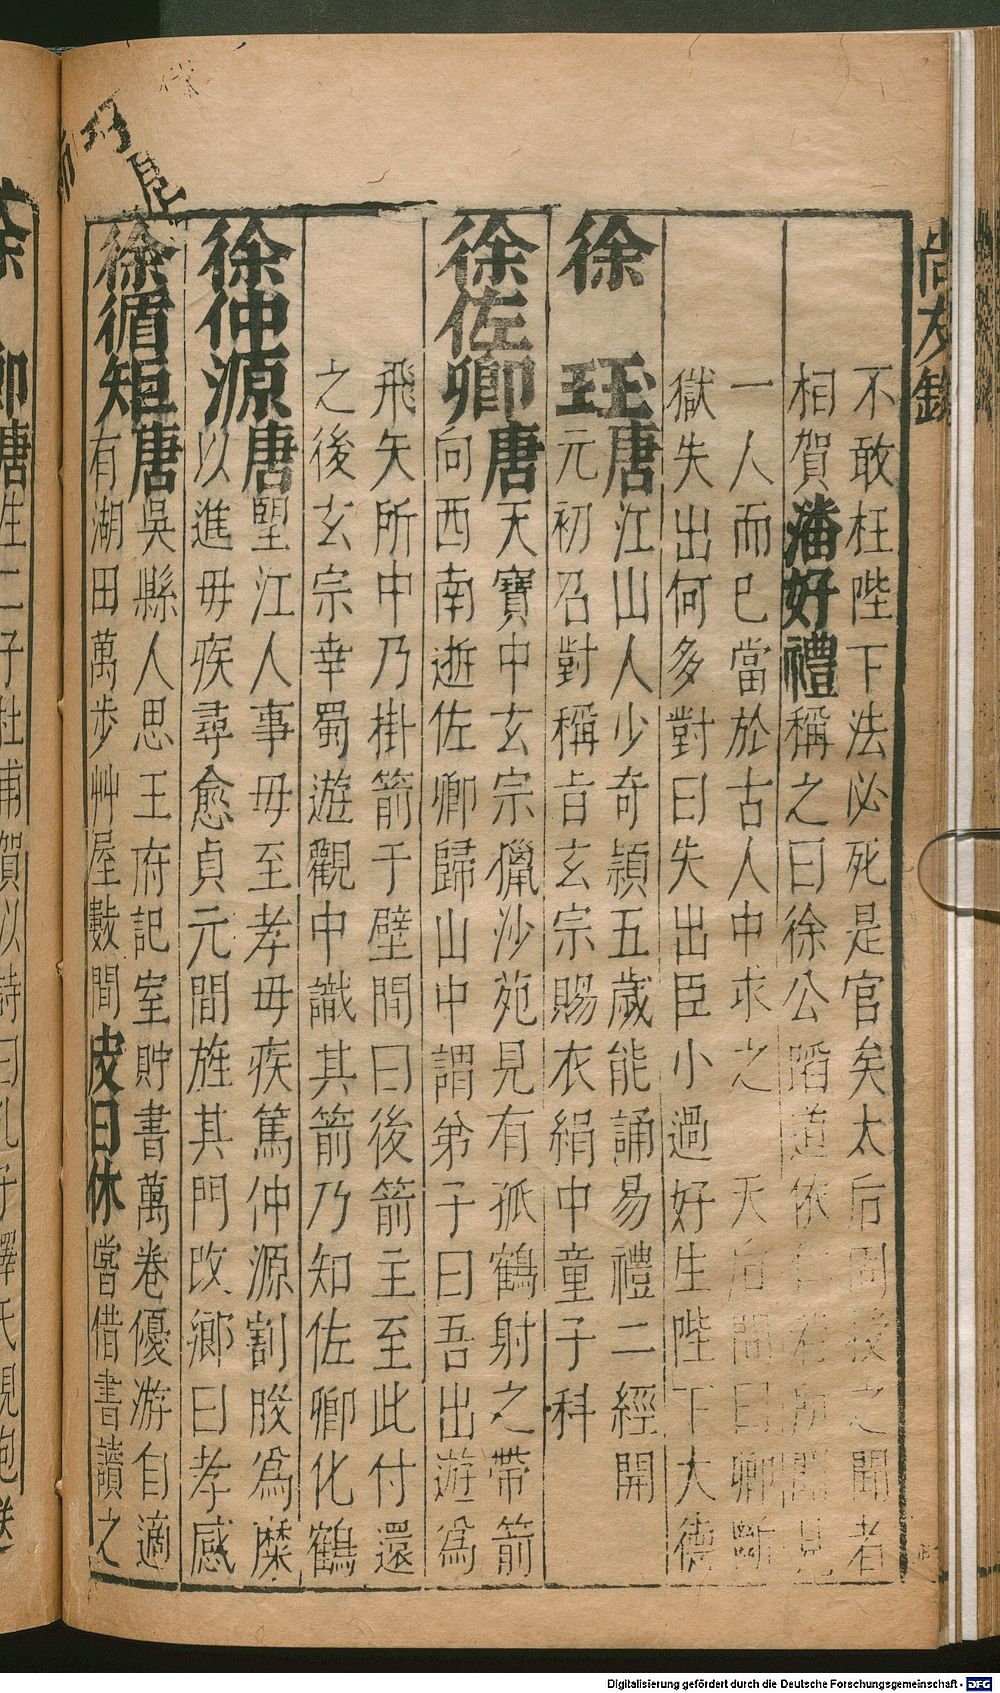 尚友錄
不敢枉陛下法必死是官矣太后固授之聞者
相賀潘好禮稱之曰徐公蹈道依仁
一人而已當於古人中求之 天后問曰卿斷
獄失出何多對曰失出臣小過好生陛下大德
徐 珏唐江山人少奇穎五歲能誦易禮二經開
元初召對稱旨玄宗賜衣絹中童子科
徐佐卿唐天寶中玄宗獵沙苑見有孤鶴射之帶箭
向西南逝佐卿歸山中謂弟子曰吾出遊爲
飛矢所中乃掛箭于壁間曰後箭主至此付還
之後玄宗幸蜀遊觀中識其箭乃知佐卿化鶴
徐仲源唐堲江人事母至孝母疾篤仲源割股爲糜
以進母疾尋愈貞元間旌其門改鄉曰孝感
徐循矩唐吳縣人思王府記室貯書萬卷優游自適
有湖田萬步艸屋數間皮日休嘗借書讀之
徐 卿唐生二子杜甫賀以詩曰孔子釋氏親抱送
Digitalisierung gefördert durch die Deutsche Forschungsgemeinschaft - DFG